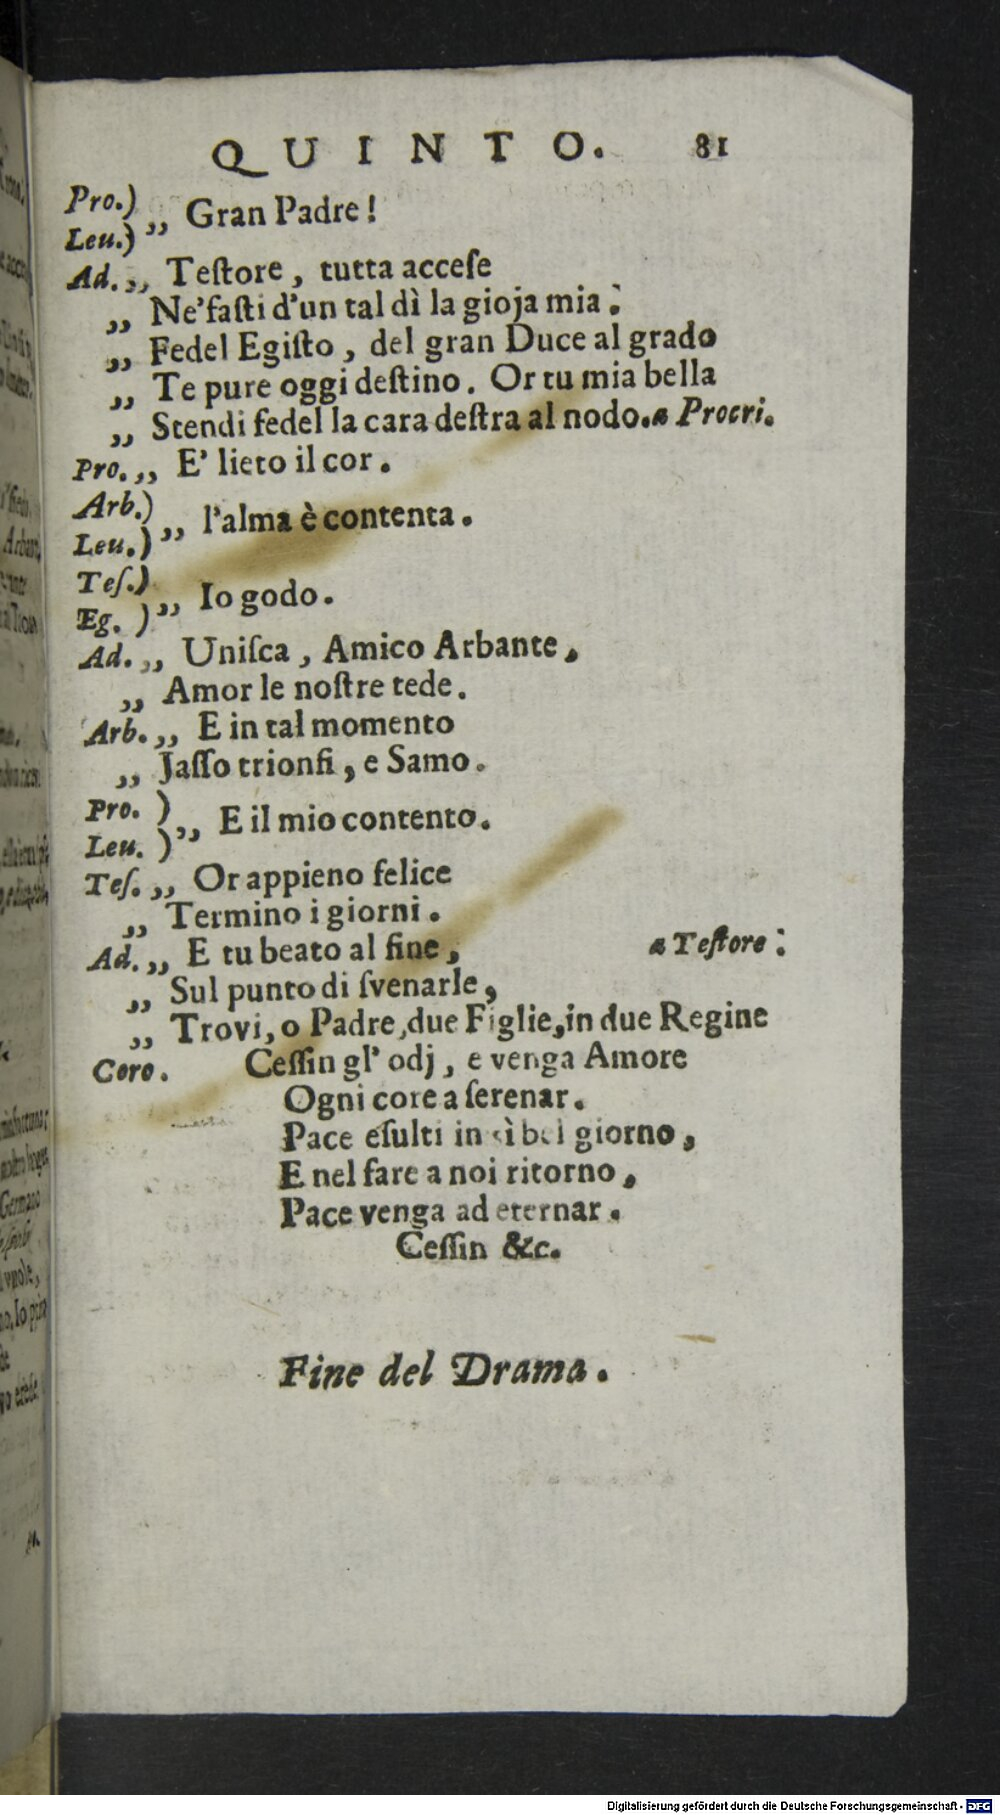 QUINTO. 81
Pro.)
Leu.) ,, Gran Padre!
Ad. ,, Teſtore, tutta acceſe
,, Ne'faſti d'un tal dì la gioja mia:
,, Fedel Egiſto, del gran Duce al grado
,, Te pure oggi deſtino. Or tu mia bella
,, Stendi fedel la cara deſtra al nodo. a Procri.
Pro. ,, E' lieto il cor.
Arb.)
Leu.) ,, l'alma è contenta.
Teſ.)
Eg. ) ,, Io godo.
Ad. ,, Uniſca, Amico Arbante,
,, Amor le noſtre tede.
Arb. ,, E in tal momento
,, Jaſſo trionfi, e Samo.
Pro. )
Leu. ) ,, E il mio contento.
Teſ. ,, Or appieno felice
,, Termino i giorni.
Ad. ,, E tu beato al fine, a Teſtore:
,, Sul punto di ſvenarle,
,, Trovi, o Padre, due Figlie, in due Regine
Coro. Ceſſin gl' odj, e venga Amore
Ogni core a ſerenar.
Pace eſulti in sì bel giorno,
E nel fare a noi ritorno,
Pace venga ad eternar.
Ceſſin &c.
Fine del Drama.
Digitalisierung gefördert durch die Deutsche Forschungsgemeinschaft - DFG